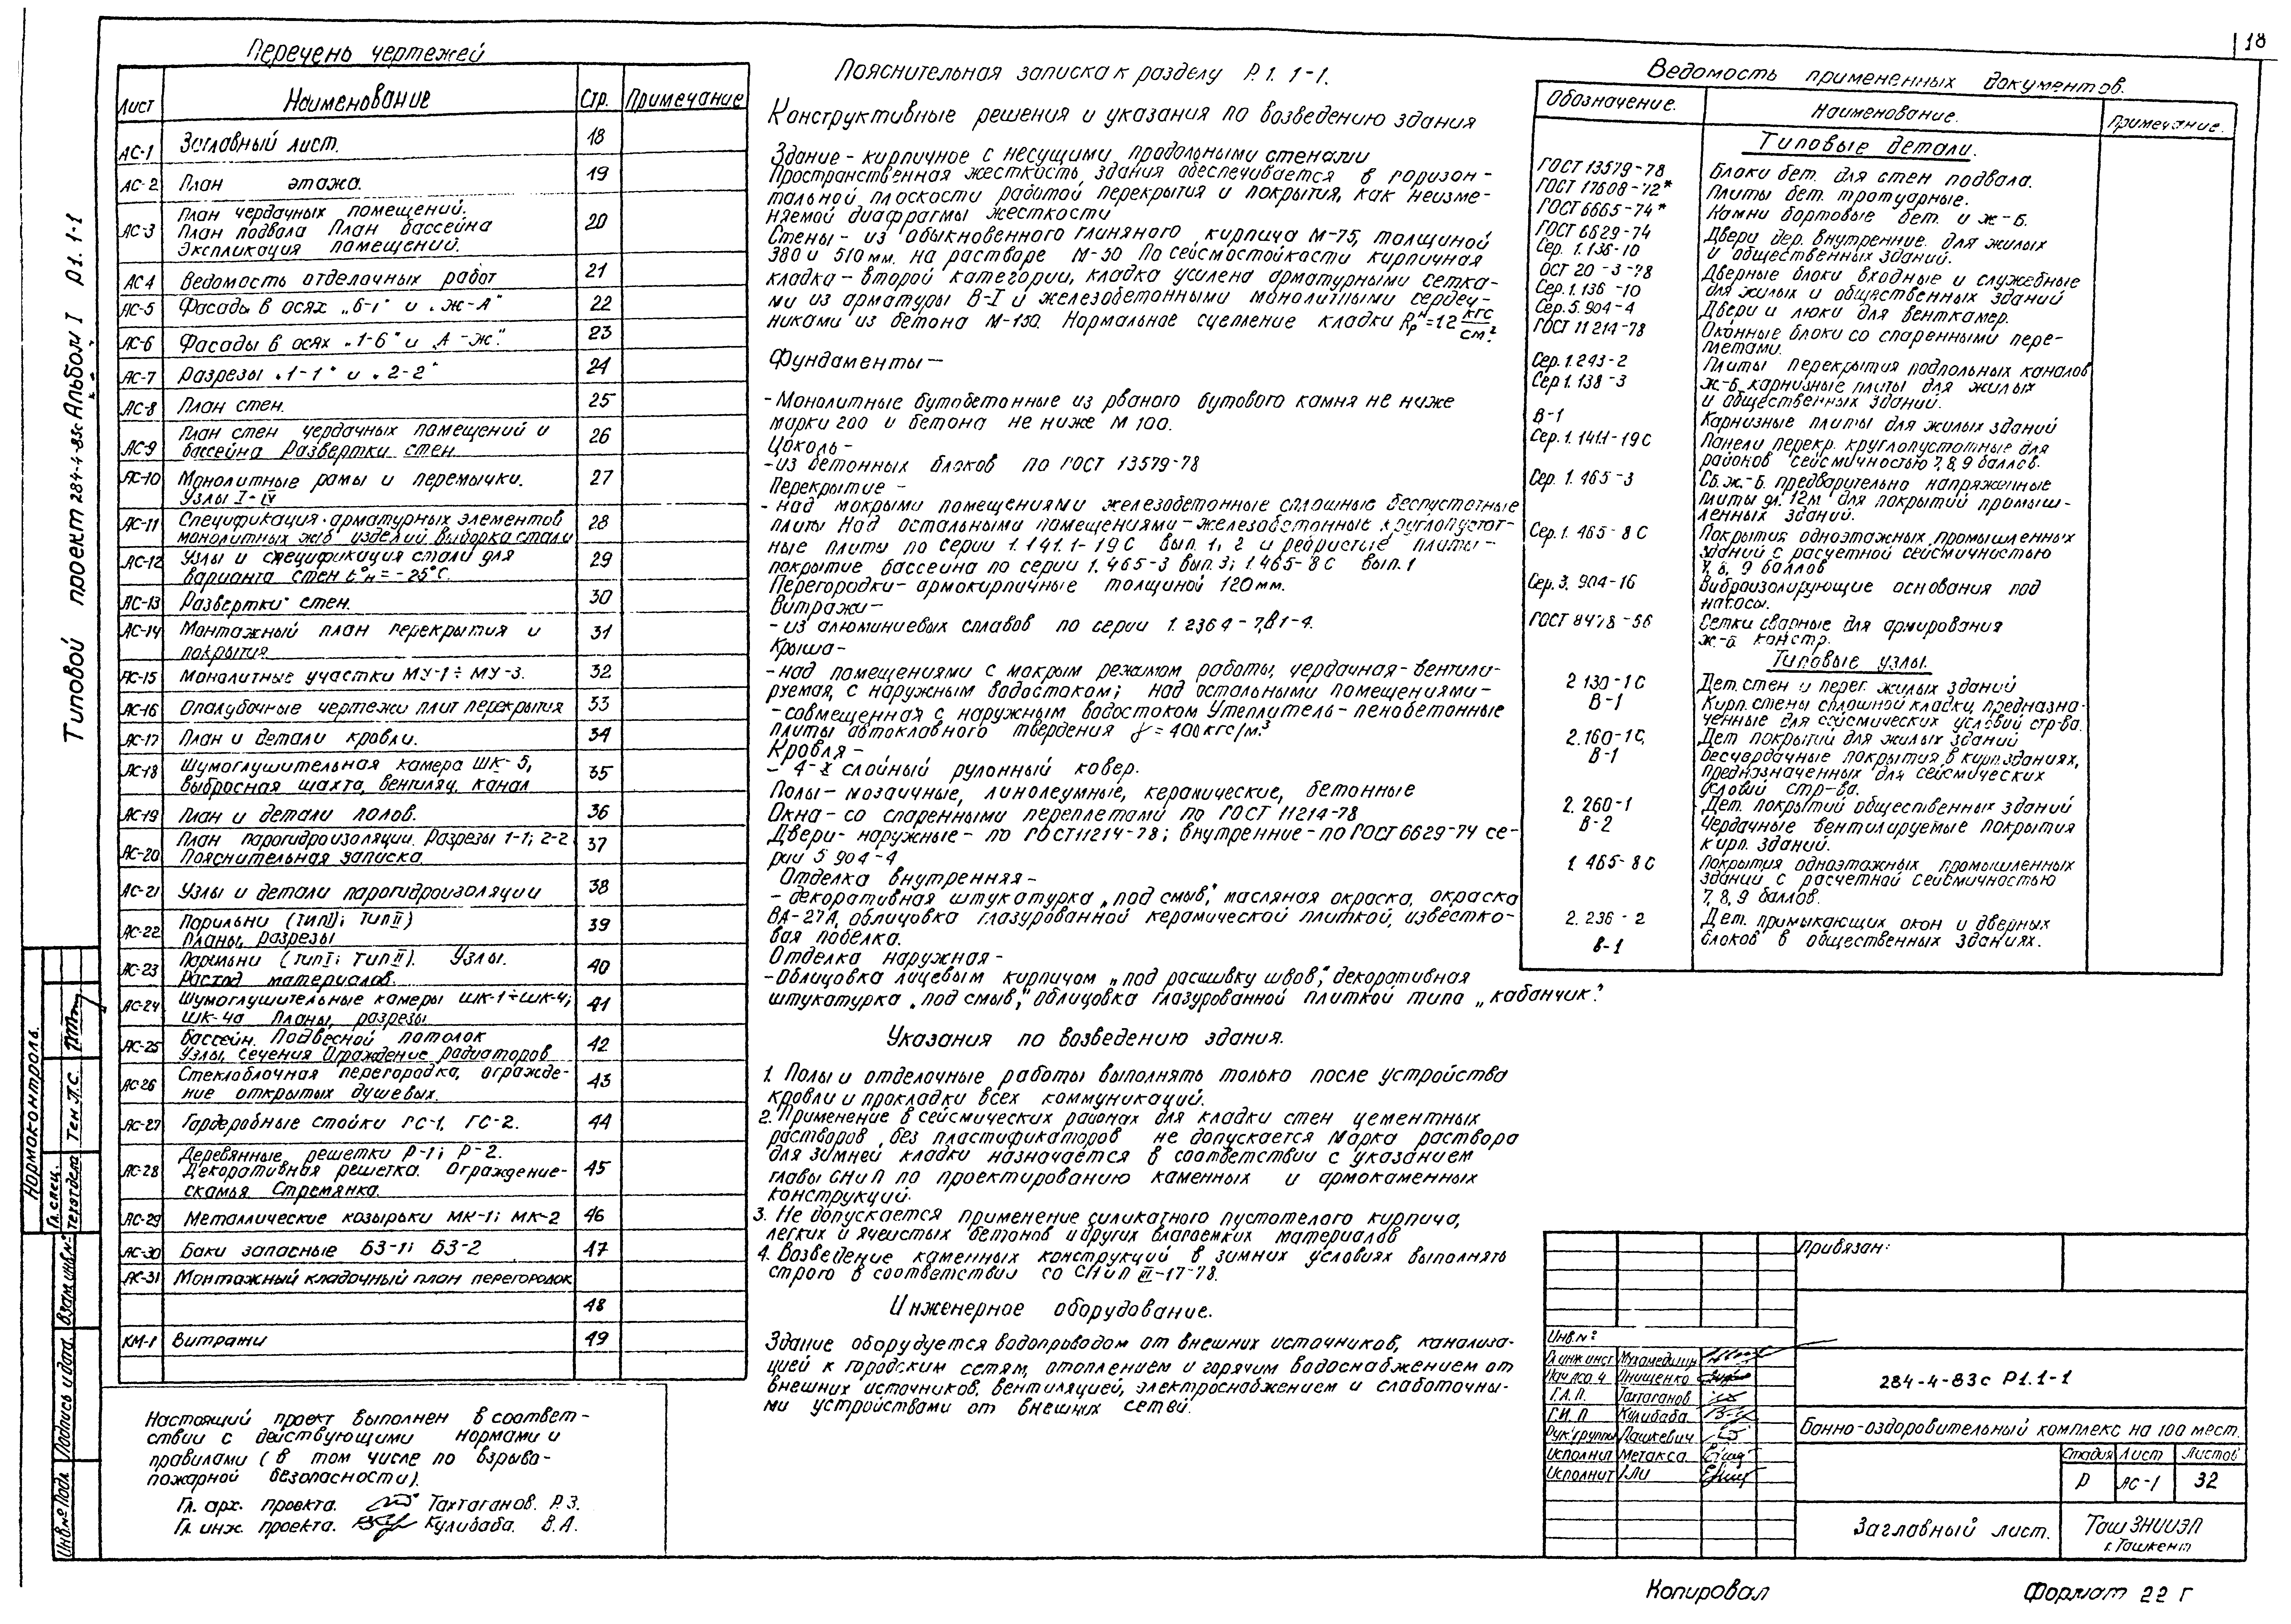 18
Типовой проект 284-4-83с Альбом I Р1. 1-1
Перечень чертежей
Лист Наименование Стр. Примечание
АС-1 Заглавный лист. 18
АС-2 План этажа. 19
АС-3 План чердачных помещений. 20
План подвала План бассейна
Экспликация помещений.
АС4 Ведомость отделочных работ 21
АС-5 Фасады в осях „6-1" и „Ж-А" 22
АС-6 Фасады в осях „1-6" и „А-Ж". 23
АС-7 Разрезы „1-1" и „2-2" 24
АС-8 План стен. 25
АС-9 План стен чердачных помещений и 26
бассейна Развертки стен
АС-10 Монолитные рамы и перемычки. 27
Узлы I-IV
АС-11 Спецификация арматурных элементов 28
монолитных ж/б изделий, выборка стали
АС-12 Узлы и спецификация стали для 29
варианта стен t°н = -25°С.
АС-13 Развертки стен. 30
АС-14 Монтажный план перекрытия и 31
покрытия
АС-15 Монолитные участки МУ-1÷МУ-3. 32
АС-16 Опалубочные чертежи плит перекрытия 33
АС-17 План и детали кровли. 34
АС-18 Шумоглушительная камера ШК-5, 35
выбросная шахта, вентиляц. канал
АС-19 План и детали полов. 36
АС-20 План парогидроизоляции. Разрезы 1-1; 2-2 37
Пояснительная записка.
АС-21 Узлы и детали парогидроизоляции 38
АС-22 Парильни (тип I; тип II) 39
Планы, разрезы
АС-23 Парильни (тип I; тип II). Узлы. 40
Расход материалов.
АС-24 Шумоглушительные камеры ШК-1÷ШК-4; 41
ШК-4а Планы, разрезы
АС-25 Бассейн. Подвесной потолок 42
Узлы, сечения Ограждение радиаторов
АС26 Стеклоблочная перегородка, огражде- 43
ние открытых душевых.
АС-27 Гардеробные стойки ГС-1, ГС-2. 44
АС-28 Деревянные решетки Р-1; Р-2. 45
Декоративная решетка. Ограждение-
скамья Стремянка.
АС-29 Металлические козырьки МК-1; МК-2 46
АС-30 Баки запасные БЗ-1; БЗ-2 47
АС-31 Монтажный кладочный план перегородок
48
КМ-1 Витражи 49
Настоящий проект выполнен в соответ-
ствии с действующими нормами и
правилами (в том числе по взрыво-
пожарной безопасности).
Гл. арх. проекта. Тахтаганов. Р.З.
Гл. инж. проекта. Кулибаба. В.А.
Пояснительная записка к разделу Р.1. 1-1.
Конструктивные решения и указания по возведению здания
Здание - кирпичное с несущими продольными стенами
Пространственная жесткость здания обеспечивается в горизон-
тальной плоскости работой перекрытия и покрытия, как неизме-
няемой диафрагмы жесткости
Стены - из обыкновенного глиняного кирпича М-75, толщиной
380 и 510 мм. на растворе М-50 По сейсмостойкости кирпичная
кладка - второй категории, кладка усилена арматурными сетка-
ми из арматуры В-I и железобетонными монолитными сердеч-
никами из бетона М-150. Нормальное сцепление кладки Rрн=1.2 кгс/см².
Фундаменты -
- Монолитные бутобетонные из рваного бутового камня не ниже
марки 200 и бетона не ниже М 100.
Цоколь -
- из бетонных блоков по ГОСТ 13579-78
Перекрытие -
- над мокрыми помещениями железобетонные сплошные беспустотные
плиты Над остальными помещениями - железобетонные круглопустот-
ные плиты по серии 1.141.1-19С вып. 1, 2 и ребристые плиты -
покрытие бассейна по серии 1.465-3 вып.3; 1.465-8С вып. 1
Перегородки - армокирпичные толщиной 120 мм.
Витражи -
- из алюминиевых сплавов по серии 1. 236 4-7, В 1-4.
Крыша -
- над помещениями с мокрым режимом работы, чердачная - вентили-
руемая, с наружным водостоком; над остальными помещениями -
- совмещенная с наружным водостоком Утеплитель - пенобетонные
плиты автоклавного твердения γ = 400 кгс/м³
Кровля -
- 4-х слойный рулонный ковер.
Полы - мозаичные, линолеумные, керамические, бетонные
Окна - со спаренными переплетами по ГОСТ 11214-78
Двери - наружные - по ГОСТ 11214-78; внутренние - по ГОСТ 6629-74 се-
рии 5 904-4
Отделка внутренняя -
- декоративная штукатурка „под смыв", масляная окраска, окраска
ВА-27А, облицовка глазурованной керамической плиткой, известко-
вая побелка.
Отделка наружная -
- Облицовка лицевым кирпичом „под расшивку швов", декоративная
штукатурка „под смыв", облицовка глазурованной плиткой типа „кабанчик".
Указания по возведению здания.
1. Полы и отделочные работы выполнять только после устройства
кровли и прокладки всех коммуникаций.
2. Применение в сейсмических районах для кладки стен цементных
растворов без пластификаторов не допускается Марка раствора
для зимней кладки назначается в соответствии с указанием
главы СНиП по проектированию каменных и армокаменных
конструкций.
3. Не допускается применение силикатного пустотелого кирпича,
легких и ячеистых бетонов и других влагоемких материалов
4. Возведение каменных конструкций в зимних условиях выполнять
строго в соответствии со СНиП III-17-78.
Инженерное оборудование.
Здание оборудуется водопроводом от внешних источников, канализа-
цией к городским сетям, отоплением и горячим водоснабжением от
внешних источников, вентиляцией, электроснабжением и слаботочны-
ми устройствами от внешних сетей.
Ведомость примененных документов.
Обозначение. Наименование. Примечание.
Типовые детали.
ГОСТ 13579-78 Блоки бет. для стен подвала.
ГОСТ 17608-72* Плиты бет. тротуарные.
ГОСТ 6665-74* Камни бортовые бет. и ж-б.
ГОСТ 6629-74 Двери дер. внутренние для жилых
Сер. 1.136-10 и общественных зданий.
ОСТ 20-3-78 Дверные блоки входные и служебные
Сер. 1.136-10 для жилых и общественных зданий
Сер. 5.904-4 Двери и люки для венткамер.
ГОСТ 11214-78 Оконные блоки со спаренными пере-
плетами.
Сер. 1.243-2 Плиты перекрытия подпольных каналов
Сер 1.138-3 ж-б карнизные плиты для жилых
и общественных зданий.
В-1 Карнизные плиты для жилых зданий
Сер. 1.141.1-19С Панели перекр. круглопустотные для
районов сейсмичностью 7, 8, 9 баллов.
Сер. 1.465-3 Сб. ж-б. предварительно напряженные
плиты дл. 12м для покрытий промыш-
ленных зданий.
Сер. 1.465-8С Покрытия одноэтажных промышленных
зданий с расчетной сейсмичностью
7, 8, 9 баллов
Сер. 3.904-16 Виброизолирующие основания под
насосы.
ГОСТ 8478-66 Сетки сварные для армирования
ж-б констр.
Типовые узлы.
2 130-1С Дет. стен и перег. жилых зданий
В-1 Кирп. стены сплошной кладки, предназна-
ченные для сейсмических условий стр-ва.
2.160-1С, Дет покрытий для жилых зданий
В-1 Бесчердачные покрытия в кирп. зданиях,
предназначенных для сейсмических
условий стр-ва.
2.260-1 Дет. покрытий общественных зданий
В-2 Чердачные вентилируемые покрытия
кирп. зданий.
1.465-8С Покрытия одноэтажных промышленных
зданий с расчетной сейсмичностью
7, 8, 9 баллов.
2.236-2 Дет. примыкающих окон и дверных
В-1 блоков в общественных зданиях.
Нормоконтроль.
Гл. спец. техотдела Тен Л.С.
Взам. инв. №
Подпись и дата
Инв № подл
Привязан:
Инв. №
Гл инж инст Мухамедшин
Нач АСО 4 Онищенко
Г.А.П. Тахтаганов
Г.И.П Кулибаба
Рук. группы Пашкевич
Исполнит Метакса
Исполнит Ли
284-4-83с Р1.1-1
Банно-оздоровительный комплекс на 100 мест.
Стадия Лист Листов
Р АС-1 32
Заглавный лист.
ТашЗНИИЭП
г. Ташкент
Копировал Формат 22 Г